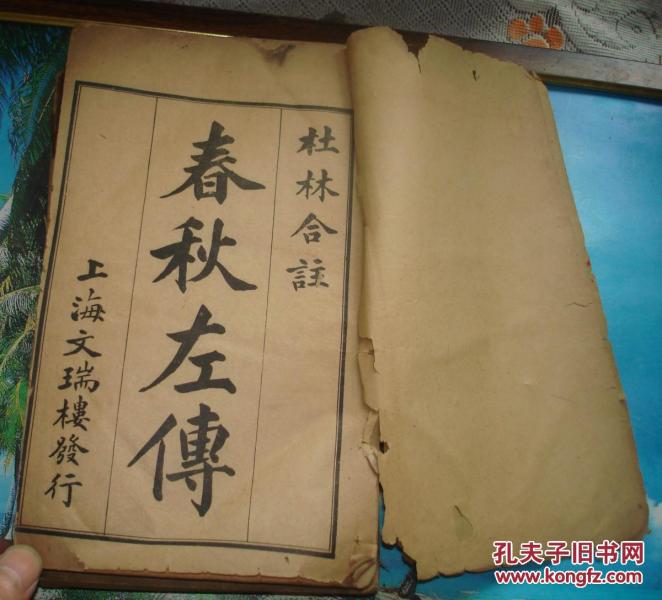 杜林合註
春秋左傳
上海文瑞樓發行
孔夫子旧书网
www.kongfz.com